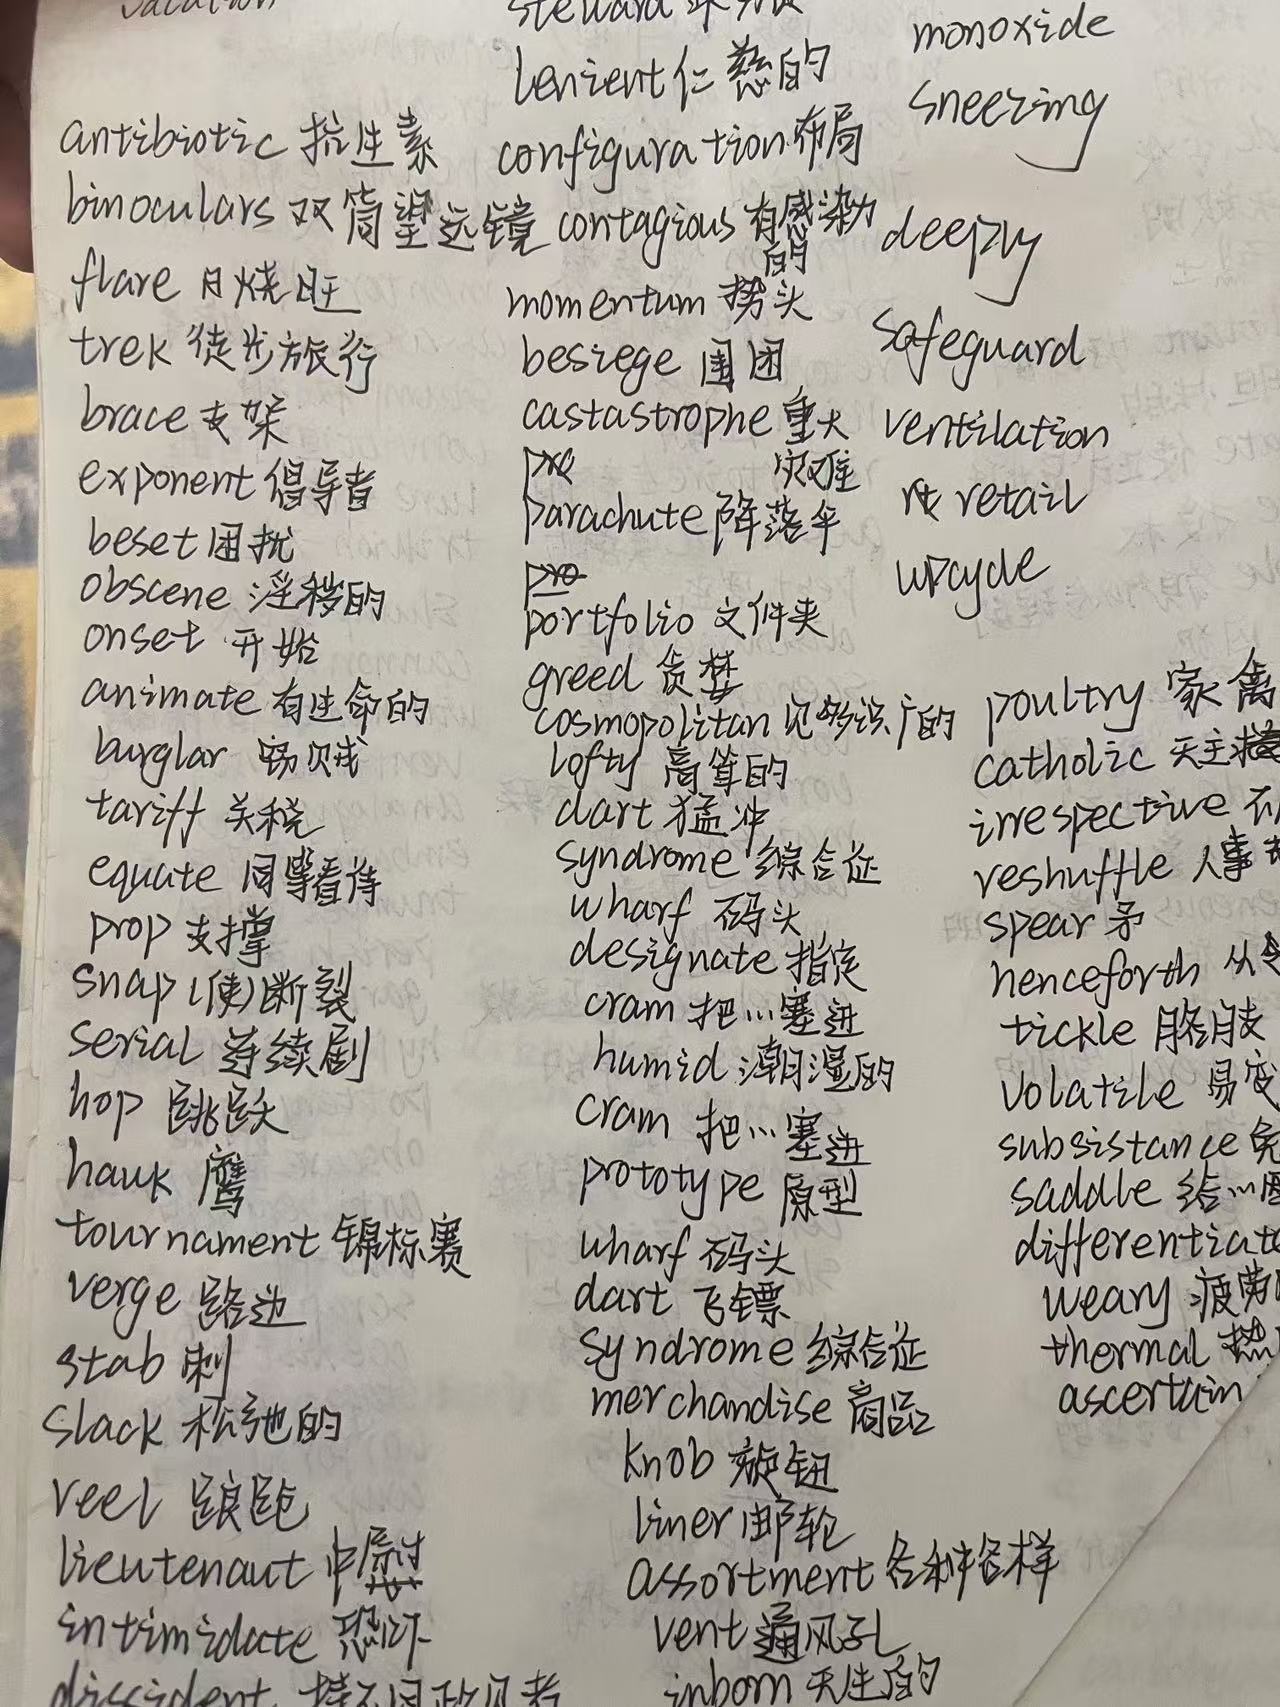 vacation
antibiotic 抗生素
binoculars 双筒望远镜
flare 火烧旺
trek 徒步旅行
brace 支架
exponent 倡导者
beset 困扰
obscene 淫秽的
onset 开始
animate 有生命的
burglar 窃贼
tariff 关税
equate 同等看待
prop 支撑
snap (使)断裂
serial 连续剧
hop 跳跃
hauk 鹰
tournament 锦标赛
verge 路边
stab 刺
slack 松弛的
reel 踉跄
lieutenaut 中尉
intimidate 恐吓
dissident 持不同政见者
steward
lenient 仁慈的
configuration 布局
contagious 有感染力
的
momentum 势头
besiege 围困
castastrophe 重大
灾难
parachute 降落伞
portfolio 文件夹
greed 贪婪
cosmopolitan 见多识广的
lofty 高耸的
dart 猛冲
syndrome 综合征
wharf 码头
designate 指定
cram 把…塞进
humid 潮湿的
cram 把…塞进
prototype 原型
wharf 码头
dart 飞镖
syndrome 综合征
merchandise 商品
knob 旋钮
liner 邮轮
assortment 各种各样
vent 通风孔
inborn 天生的
monoxide
sneezing
deeply
safeguard
ventilation
retail
upcycle
poultry 家禽
catholic 天主教
irrespective 不
reshuffle 人事
spear 矛
henceforth 从今
tickle 胳肢
volatile 易变
subsistance
saddle 给…
differentiate
weary 疲劳
thermal 热
ascertain